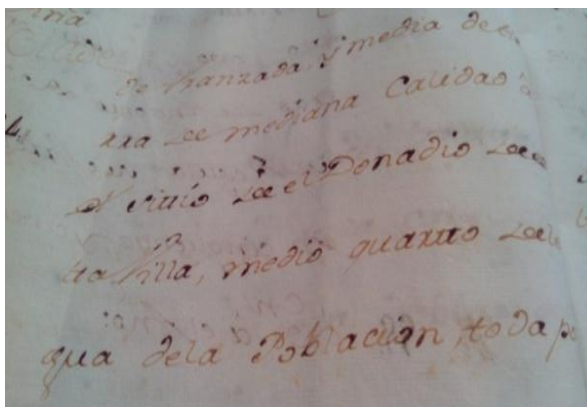 de Aranzada y media de
rra de mediana Calidad
el sitio de el Donadio de
tra Villa, medio quarto de
gua dela Poblacion, toda p